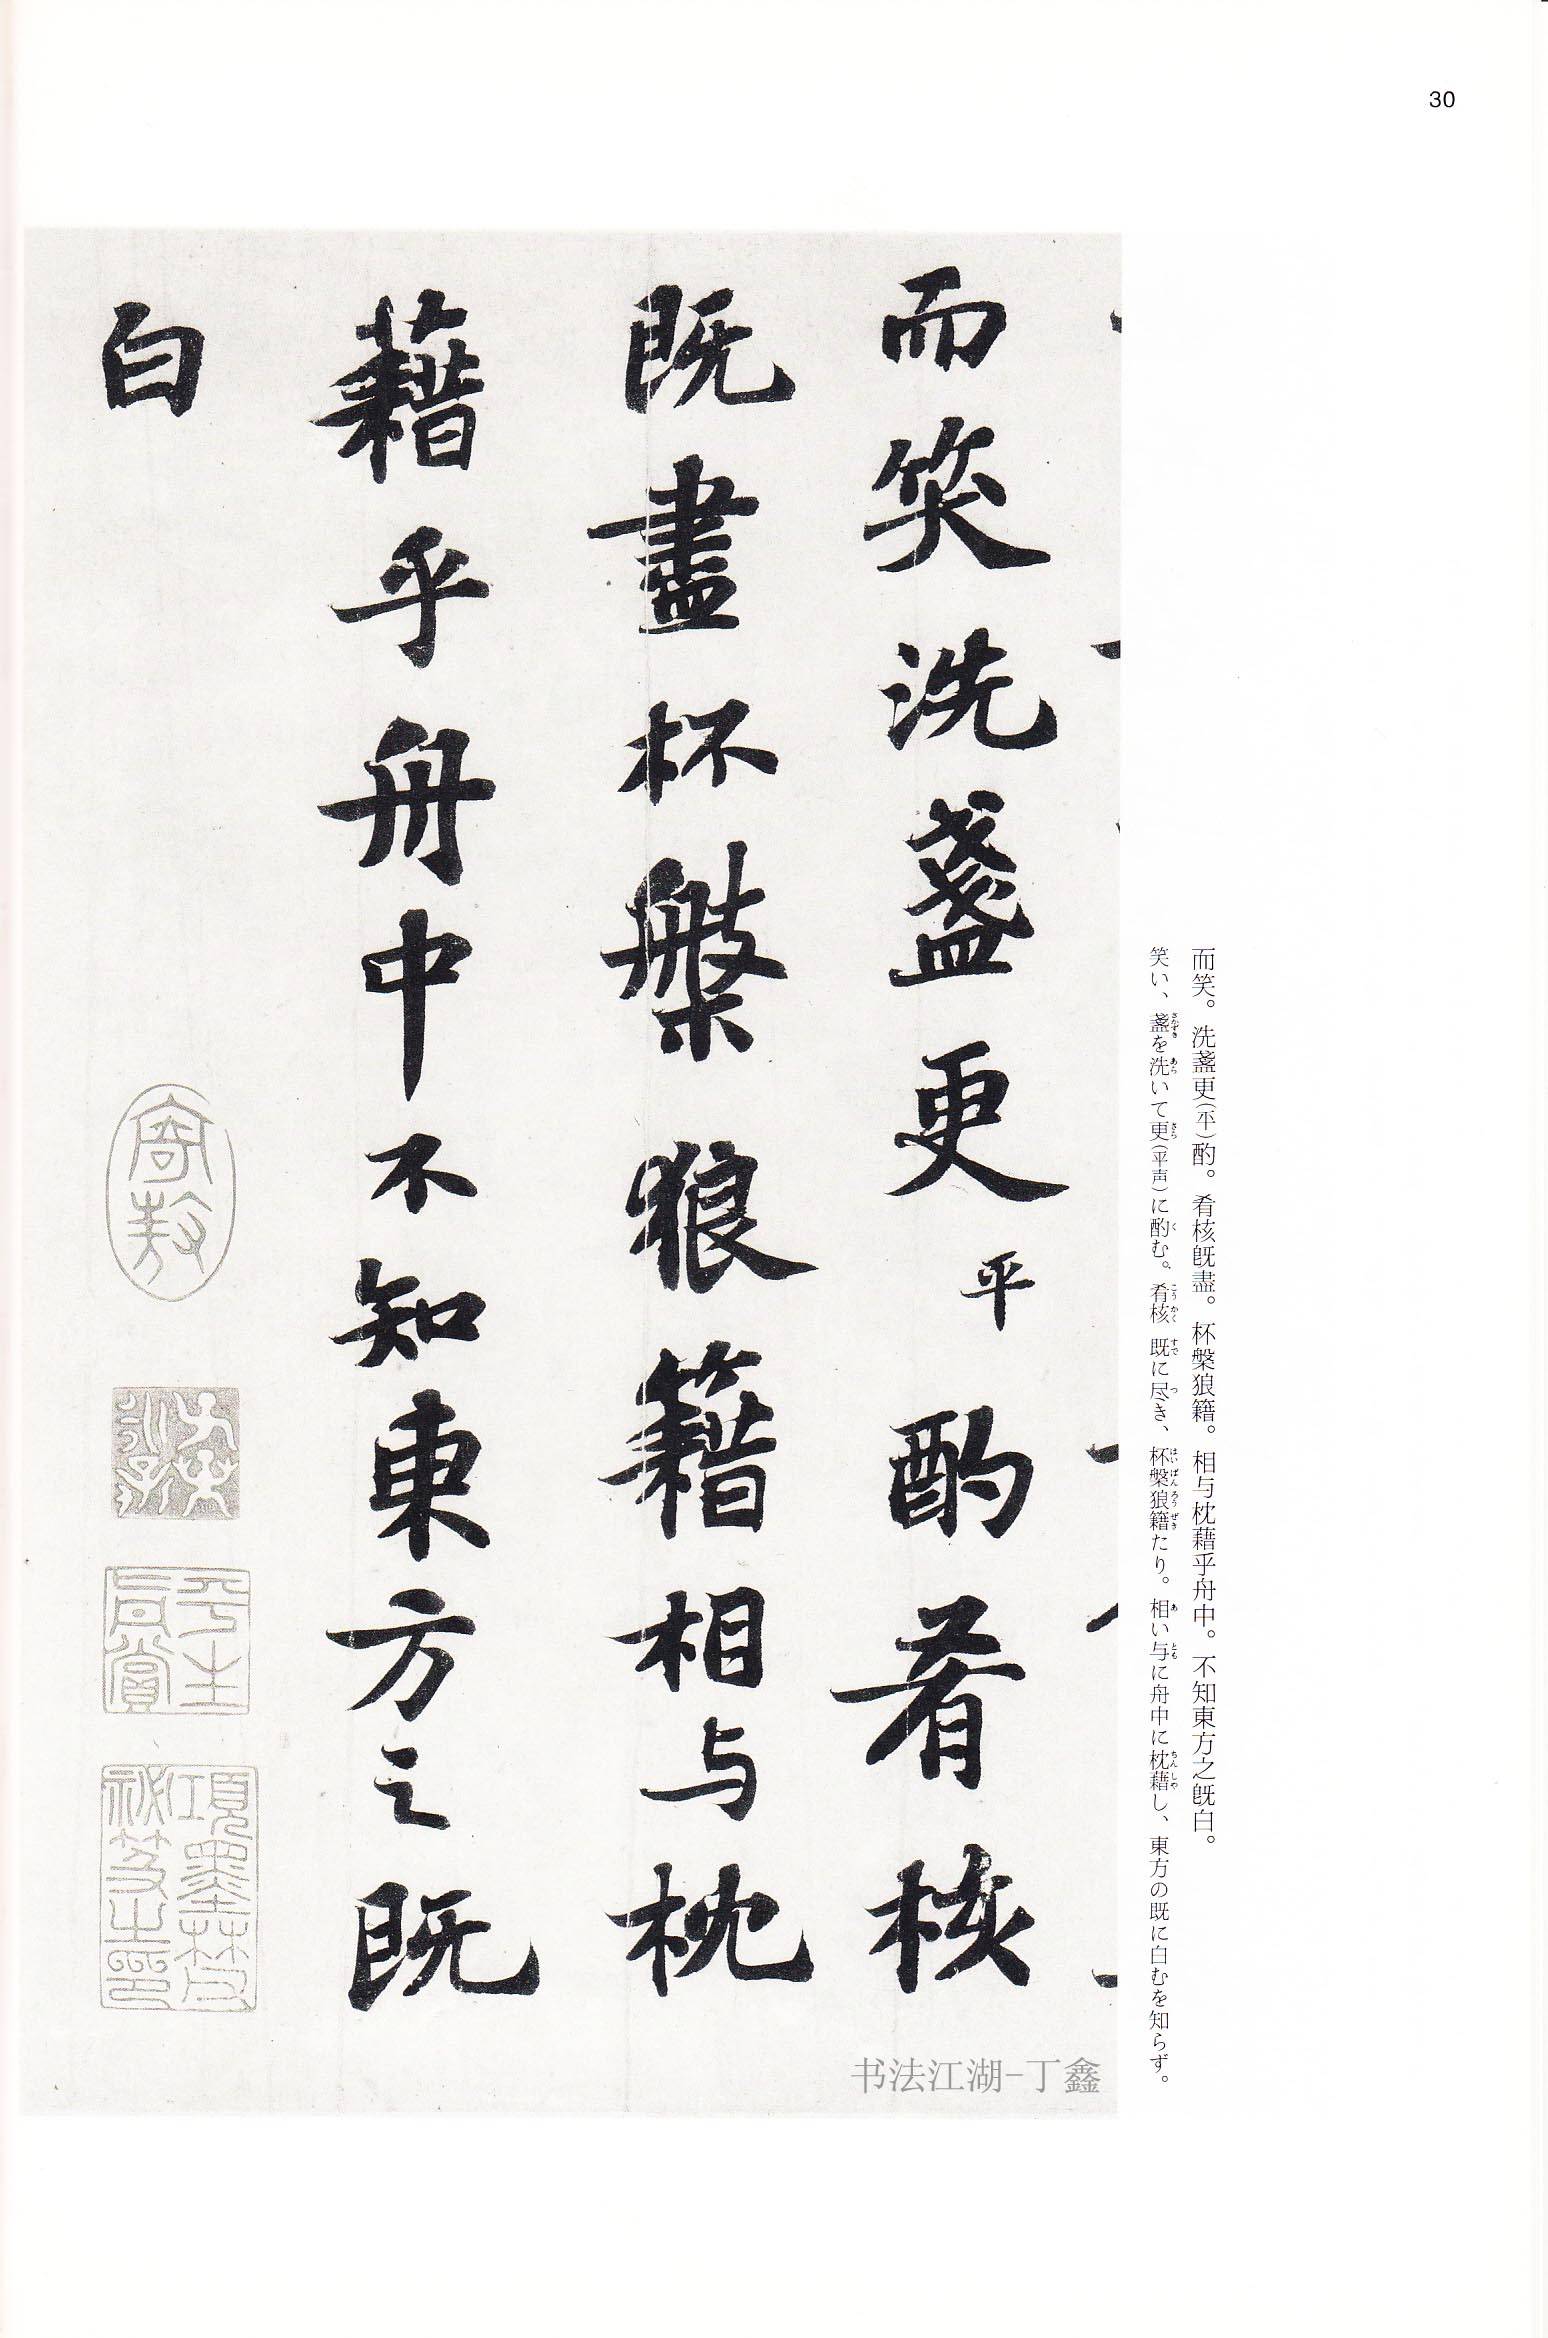 30
而笑洗盞更平酌肴核
既盡杯槃狼籍相与枕
藉乎舟中不知東方之既
白
寄敖
平生真賞
項墨林父秘笈之印
而笑。洗盞更(平)酌。肴核既盡。杯槃狼籍。相与枕藉乎舟中。不知東方之既白。
笑い、盞を洗いて更(平声)に酌む。肴核既に尽き、杯槃狼籍たり。相い与に舟中に枕藉し、東方の既に白むを知らず。
书法江湖-丁鑫